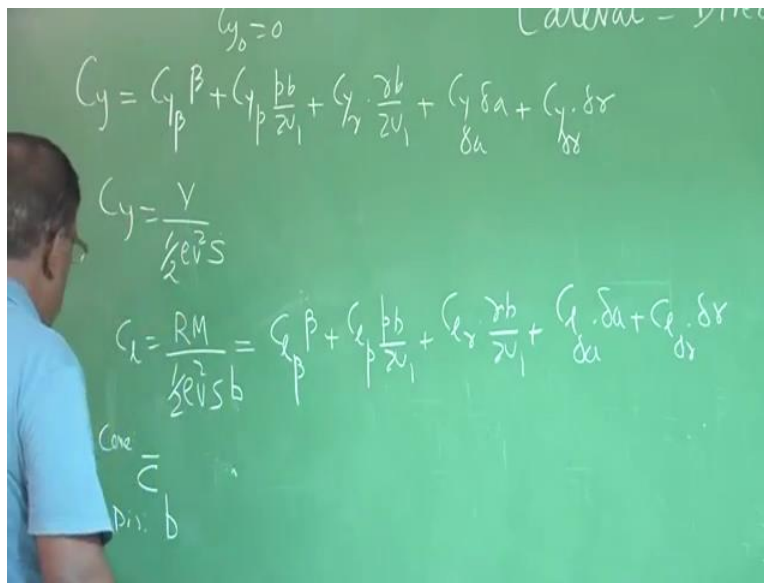 C_{y_0} = 0
Lateral - Direc
C_y = C_{y_β} β + C_{y_p} \frac{pb}{2U_1} + C_{y_r} · \frac{rb}{2U_1} + C_{y_{δa}} δa + C_{y_{δr}} · δr
C_y = \frac{Y}{\frac{1}{2} ρ v^2 S}
C_l = \frac{RM}{\frac{1}{2} ρ v^2 S b} = C_{l_β} β + C_{l_p} \frac{pb}{2U_1} + C_{l_r} · \frac{rb}{2U_1} + C_{l_{δa}} · δa + C_{l_{δr}} · δr
\bar{C}
Dir: b